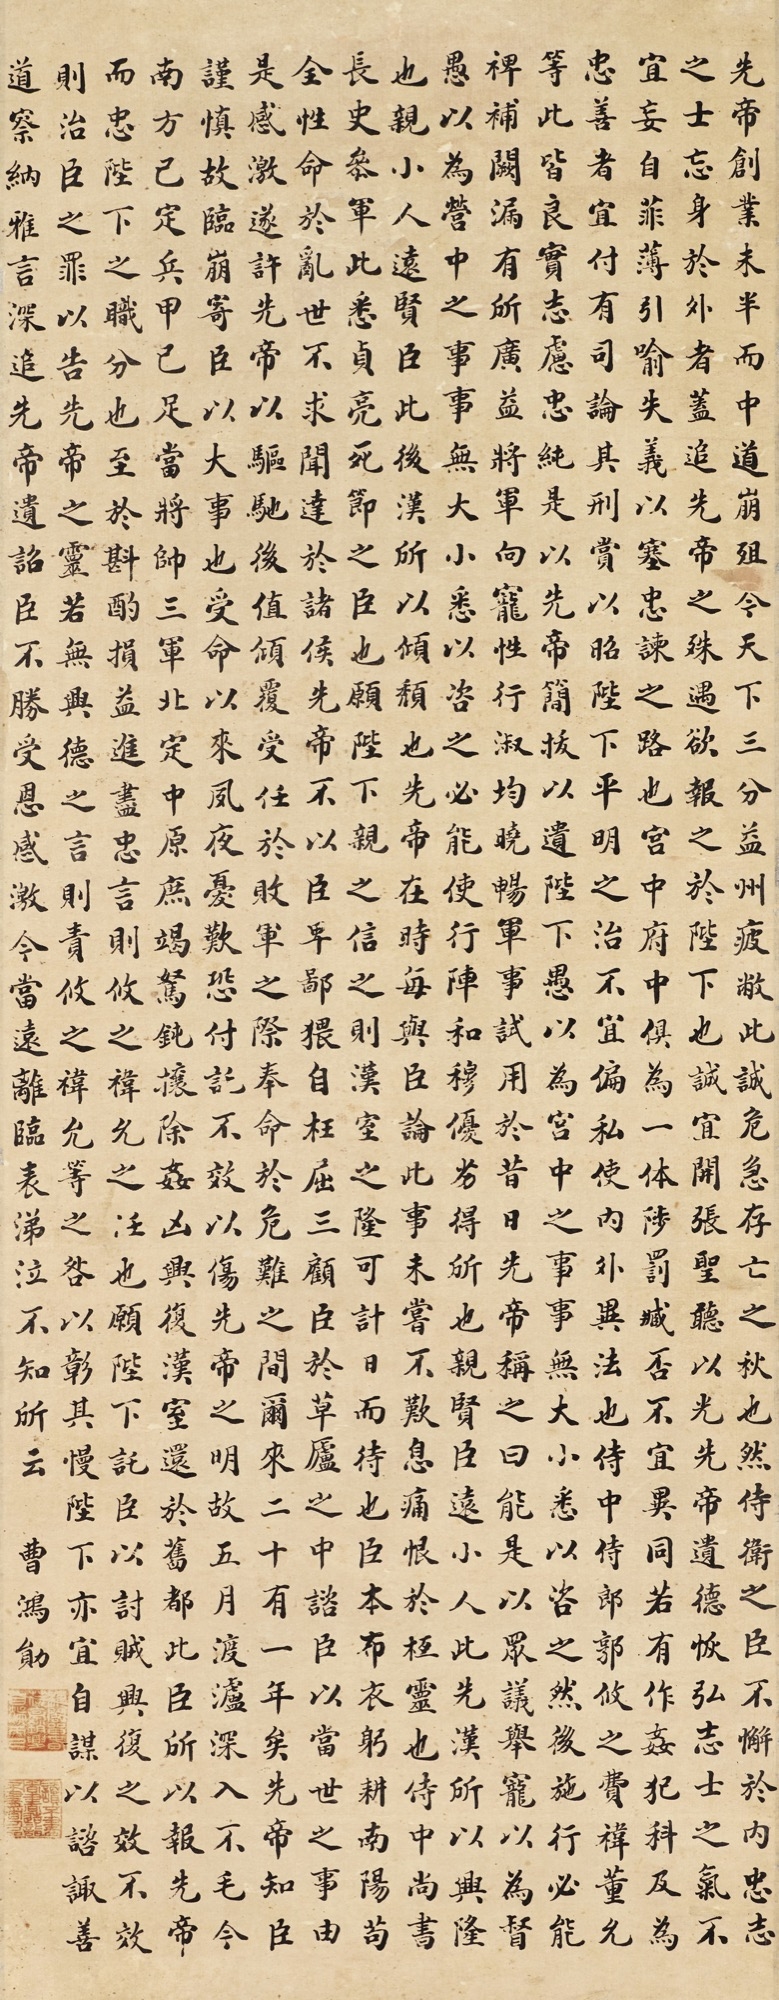 先帝創業未半而中道崩殂今天下三分益州疲敝此誠危急存亡之秋也然侍衛之臣不懈於內忠志
之士忘身於外者蓋追先帝之殊遇欲報之於陛下也誠宜開張聖聽以光先帝遺德恢弘志士之氣不
宜妄自菲薄引喻失義以塞忠諫之路也宮中府中俱為一体陟罰臧否不宜異同若有作姦犯科及為
忠善者宜付有司論其刑賞以昭陛下平明之治不宜偏私使內外異法也侍中侍郎郭攸之費禕董允
等此皆良實志慮忠純是以先帝簡拔以遺陛下愚以為宮中之事事無大小悉以咨之然後施行必能
裨補闕漏有所廣益將軍向寵性行淑均曉暢軍事試用於昔日先帝稱之曰能是以眾議舉寵以為督
愚以為營中之事事無大小悉以咨之必能使行陣和穆優劣得所也親賢臣遠小人此先漢所以興隆
也親小人遠賢臣此後漢所以傾頹也先帝在時每與臣論此事未嘗不歎息痛恨於桓靈也侍中尚書
長史參軍此悉貞亮死節之臣也願陛下親之信之則漢室之隆可計日而待也臣本布衣躬耕南陽苟
全性命於亂世不求聞達於諸侯先帝不以臣卑鄙猥自枉屈三顧臣於草廬之中諮臣以當世之事由
是感激遂許先帝以驅馳後值傾覆受任於敗軍之際奉命於危難之間爾來二十有一年矣先帝知臣
謹慎故臨崩寄臣以大事也受命以來夙夜憂歎恐付託不效以傷先帝之明故五月渡瀘深入不毛今
南方已定兵甲已足當將帥三軍北定中原庶竭駑鈍攘除姦凶興復漢室還於舊都此臣所以報先帝
而忠陛下之職分也至於斟酌損益進盡忠言則攸之禕允之任也願陛下託臣以討賊興復之效不效
則治臣之罪以告先帝之靈若無興德之言則責攸之禕允等之咎以彰其慢陛下亦宜自謀以諮諏善
道察納雅言深追先帝遺詔臣不勝受恩感激今當遠離臨表涕泣不知所云　曹鴻勛